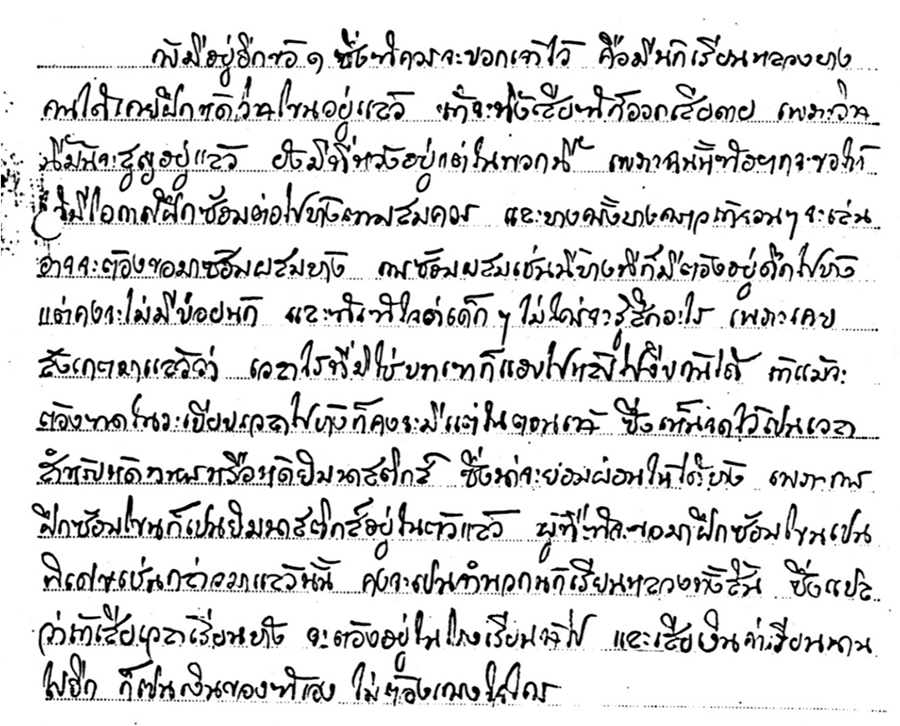 ยังมีอยู่อีกข้อ ๑ ซึ่งข้าควรจะบอกเจ้าไว้ คือมีนักเรียนหลวงบาง
คนได้เคยฝึกหัดเล่นโขนอยู่แล้ว ถ้าจะทิ้งเสียทีก็ออกเสียดาย เพราะวิชา
นี้มันจะสูญอยู่แล้ว ยังมีที่หวังอยู่แต่ในพวกนี้ เพราะฉะนั้นข้าอยากจะขอให้
ได้มีโอกาสฝึกซ้อมต่อไปบ้างตามสมควร และบางครั้งบางคราวเมื่อจวนๆ จะเล่น
อาจจะต้องขอมาซ้อมผสมบ้าง การซ้อมผสมเช่นนี้บางทีก็มีต้องอยู่ดึกไปบ้าง
แต่คงจะไม่มีบ่อยนัก และข้าเข้าใจว่าเด็ก ๆ ไม่ใคร่จะรู้สึกอะไร เพราะเคย
สังเกตมาแล้วว่า เวลาใดที่มิใช่บทเขาก็แอบไปหลับไปงีบกันได้ ถ้าแม้จะ
ต้องขาดในระเบียบเวลาไปบ้างก็คงจะมีแต่ในตอนเช้า ซึ่งเห็นจัดไว้เป็นเวลา
สำหรับหัดทหารหรือหัดยิมนาสติกส์ ซึ่งน่าจะย่อมผ่อนให้ได้บ้าง เพราะการ
ฝึกซ้อมโขนก็เป็นยิมนาสติกส์อยู่ในตัวแล้ว ผู้ที่ข้าจะขอมาฝึกซ้อมโขนเป็น
พิเศษเช่นกล่าวมาแล้วนั้น คงจะเป็นจำพวกนักเรียนหลวงทั้งสิ้น ซึ่งแปล
ว่าถ้าเสียเวลาเรียนบ้าง จะต้องอยู่ในโรงเรียนช้าไป และเสียเงินค่าเรียนนาน
ไปอีก ก็เป็นเงินของข้าเอง ไม่ต้องเกรงใจใคร